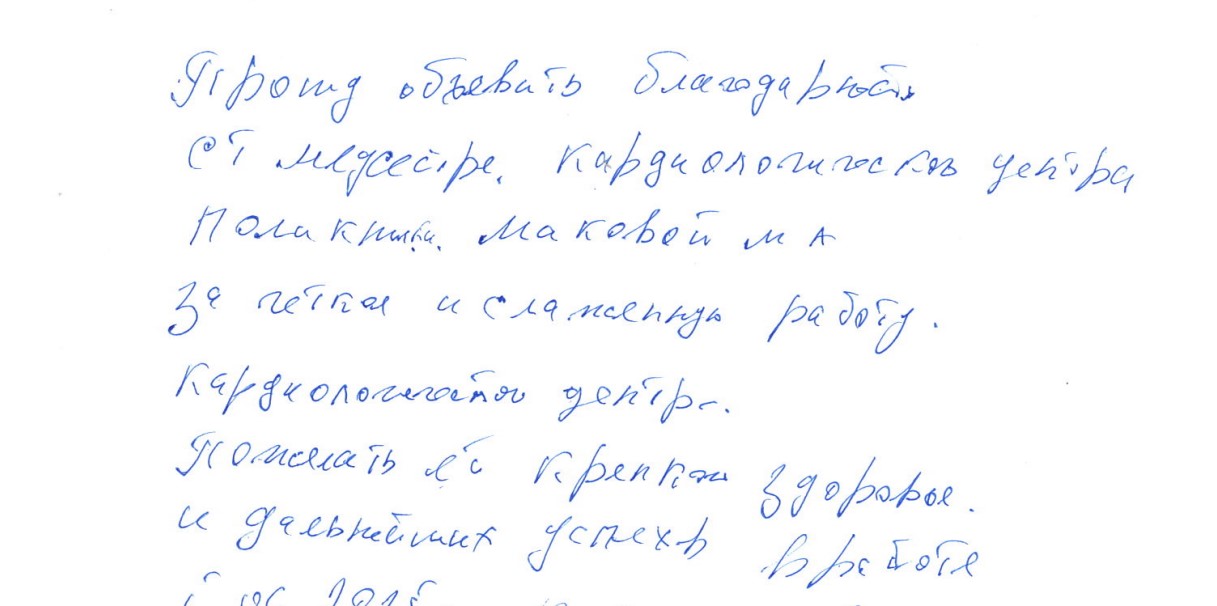 Прошу объевить благодарность
ст медсестре. кардиологическов центра
Поликлиники. Маковой м А
За четкое и слаженную работу.
кардиологического центра.
Пожелать ей крепкое здоровье.
и дальнейших успехов в работе